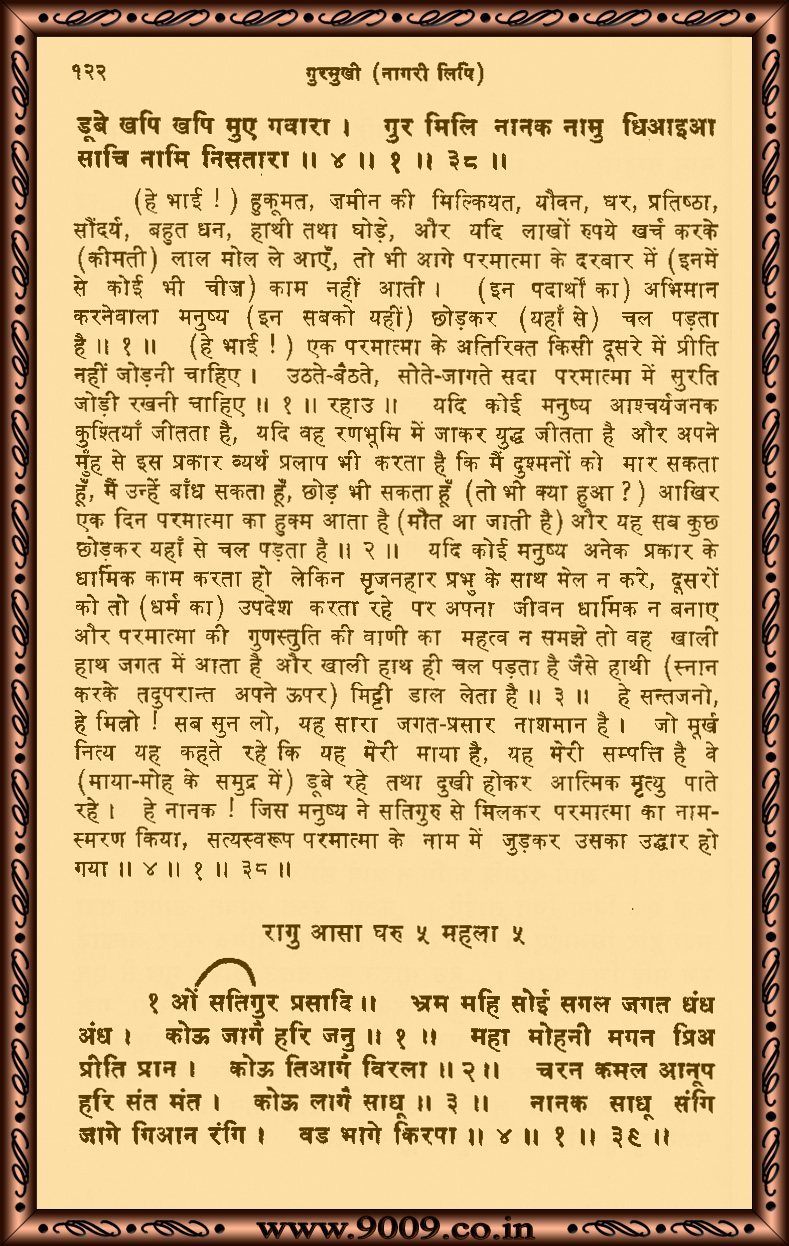 १२२ गुरमुखी (नागरी लिपि)
डूबे खपि खपि मुए गवारा । गुर मिलि नानक नामु धिआइआ
साचि नामि निसतारा ॥ ४ ॥ १ ॥ ३८ ॥
(हे भाई ! ) हुकूमत, ज़मीन की मिल्कियत, यौवन, घर, प्रतिष्ठा,
सौंदर्य, बहुत धन, हाथी तथा घोड़े, और यदि लाखों रुपये खर्च करके
(कीमती) लाल मोल ले आएँ, तो भी आगे परमात्मा के दरबार में (इनमें
से कोई भी चीज़) काम नहीं आती । (इन पदार्थों का) अभिमान
करनेवाला मनुष्य (इन सबको यहीं) छोड़कर (यहाँ से) चल पड़ता
है ॥ १ ॥ (हे भाई ! ) एक परमात्मा के अतिरिक्त किसी दूसरे में प्रीति
नहीं जोड़नी चाहिए । उठते-बैठते, सोते-जागते सदा परमात्मा में सुरति
जोड़ी रखनी चाहिए ॥ १ ॥ रहाउ ॥ यदि कोई मनुष्य आश्चर्यजनक
कुश्तियाँ जीतता है, यदि वह रणभूमि में जाकर युद्ध जीतता है और अपने
मुँह से इस प्रकार व्यर्थ प्रलाप भी करता है कि मैं दुश्मनों को मार सकता
हूँ, मैं उन्हें बाँध सकता हूँ, छोड़ भी सकता हूँ (तो भी क्या हुआ ? ) आखिर
एक दिन परमात्मा का हुक्म आता है (मौत आ जाती है) और यह सब कुछ
छोड़कर यहाँ से चल पड़ता है ॥ २ ॥ यदि कोई मनुष्य अनेक प्रकार के
धार्मिक काम करता हो लेकिन सृजनहार प्रभु के साथ मेल न करे, दूसरों
को तो (धर्म का) उपदेश करता रहे पर अपना जीवन धार्मिक न बनाए
और परमात्मा की गुणस्तुति की वाणी का महत्व न समझे तो वह खाली
हाथ जगत में आता है और खाली हाथ ही चल पड़ता है जैसे हाथी (स्नान
करके तदुपरान्त अपने ऊपर) मिट्टी डाल लेता है ॥ ३ ॥ हे सन्तजनो,
हे मित्रो ! सब सुन लो, यह सारा जगत-प्रसार नाशमान है । जो मूर्ख
नित्य यह कहते रहे कि यह मेरी माया है, यह मेरी सम्पत्ति है वे
(माया-मोह के समुद्र में) डूबे रहे तथा दुखी होकर आत्मिक मृत्यु पाते
रहे । हे नानक ! जिस मनुष्य ने सतिगुरु से मिलकर परमात्मा का नाम-
स्मरण किया, सत्यस्वरूप परमात्मा के नाम में जुड़कर उसका उद्धार हो
गया ॥ ४ ॥ १ ॥ ३८ ॥
रागु आसा घरु ५ महला ५
१ ओं सतिगुर प्रसादि ॥ भ्रम महि सोई सगल जगत धंध
अंध । कोऊ जागै हरि जनु ॥ १ ॥ महा मोहनी मगन प्रिअ
प्रीति प्रान । कोऊ तिआगै विरला ॥ २ ॥ चरन कमल आनूप
हरि संत मंत । कोऊ लागै साधू ॥ ३ ॥ नानक साधू संगि
जागे गिआन रंगि । वड भागे किरपा ॥ ४ ॥ १ ॥ ३९ ॥
www.9009.co.in